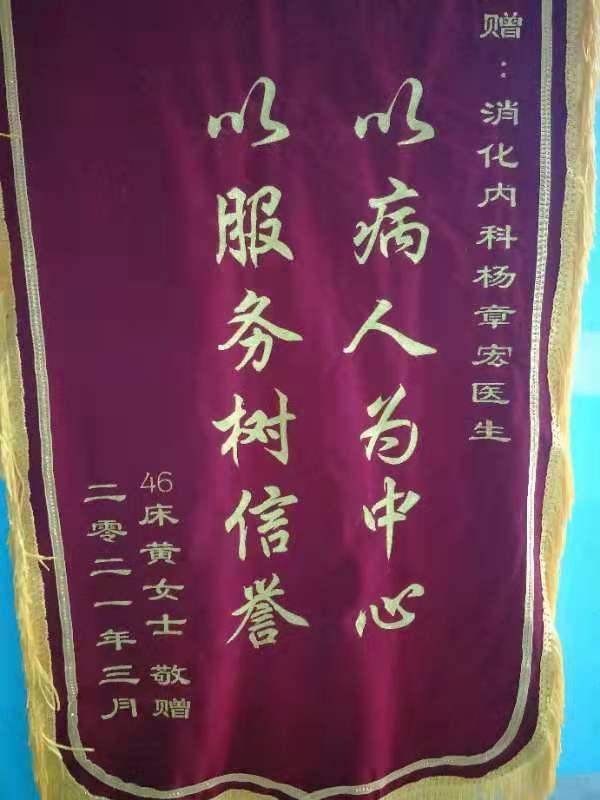 赠：消化内科杨章宏医生
以病人为中心
以服务树信誉
46床黄女士 敬赠
二零二一年三月